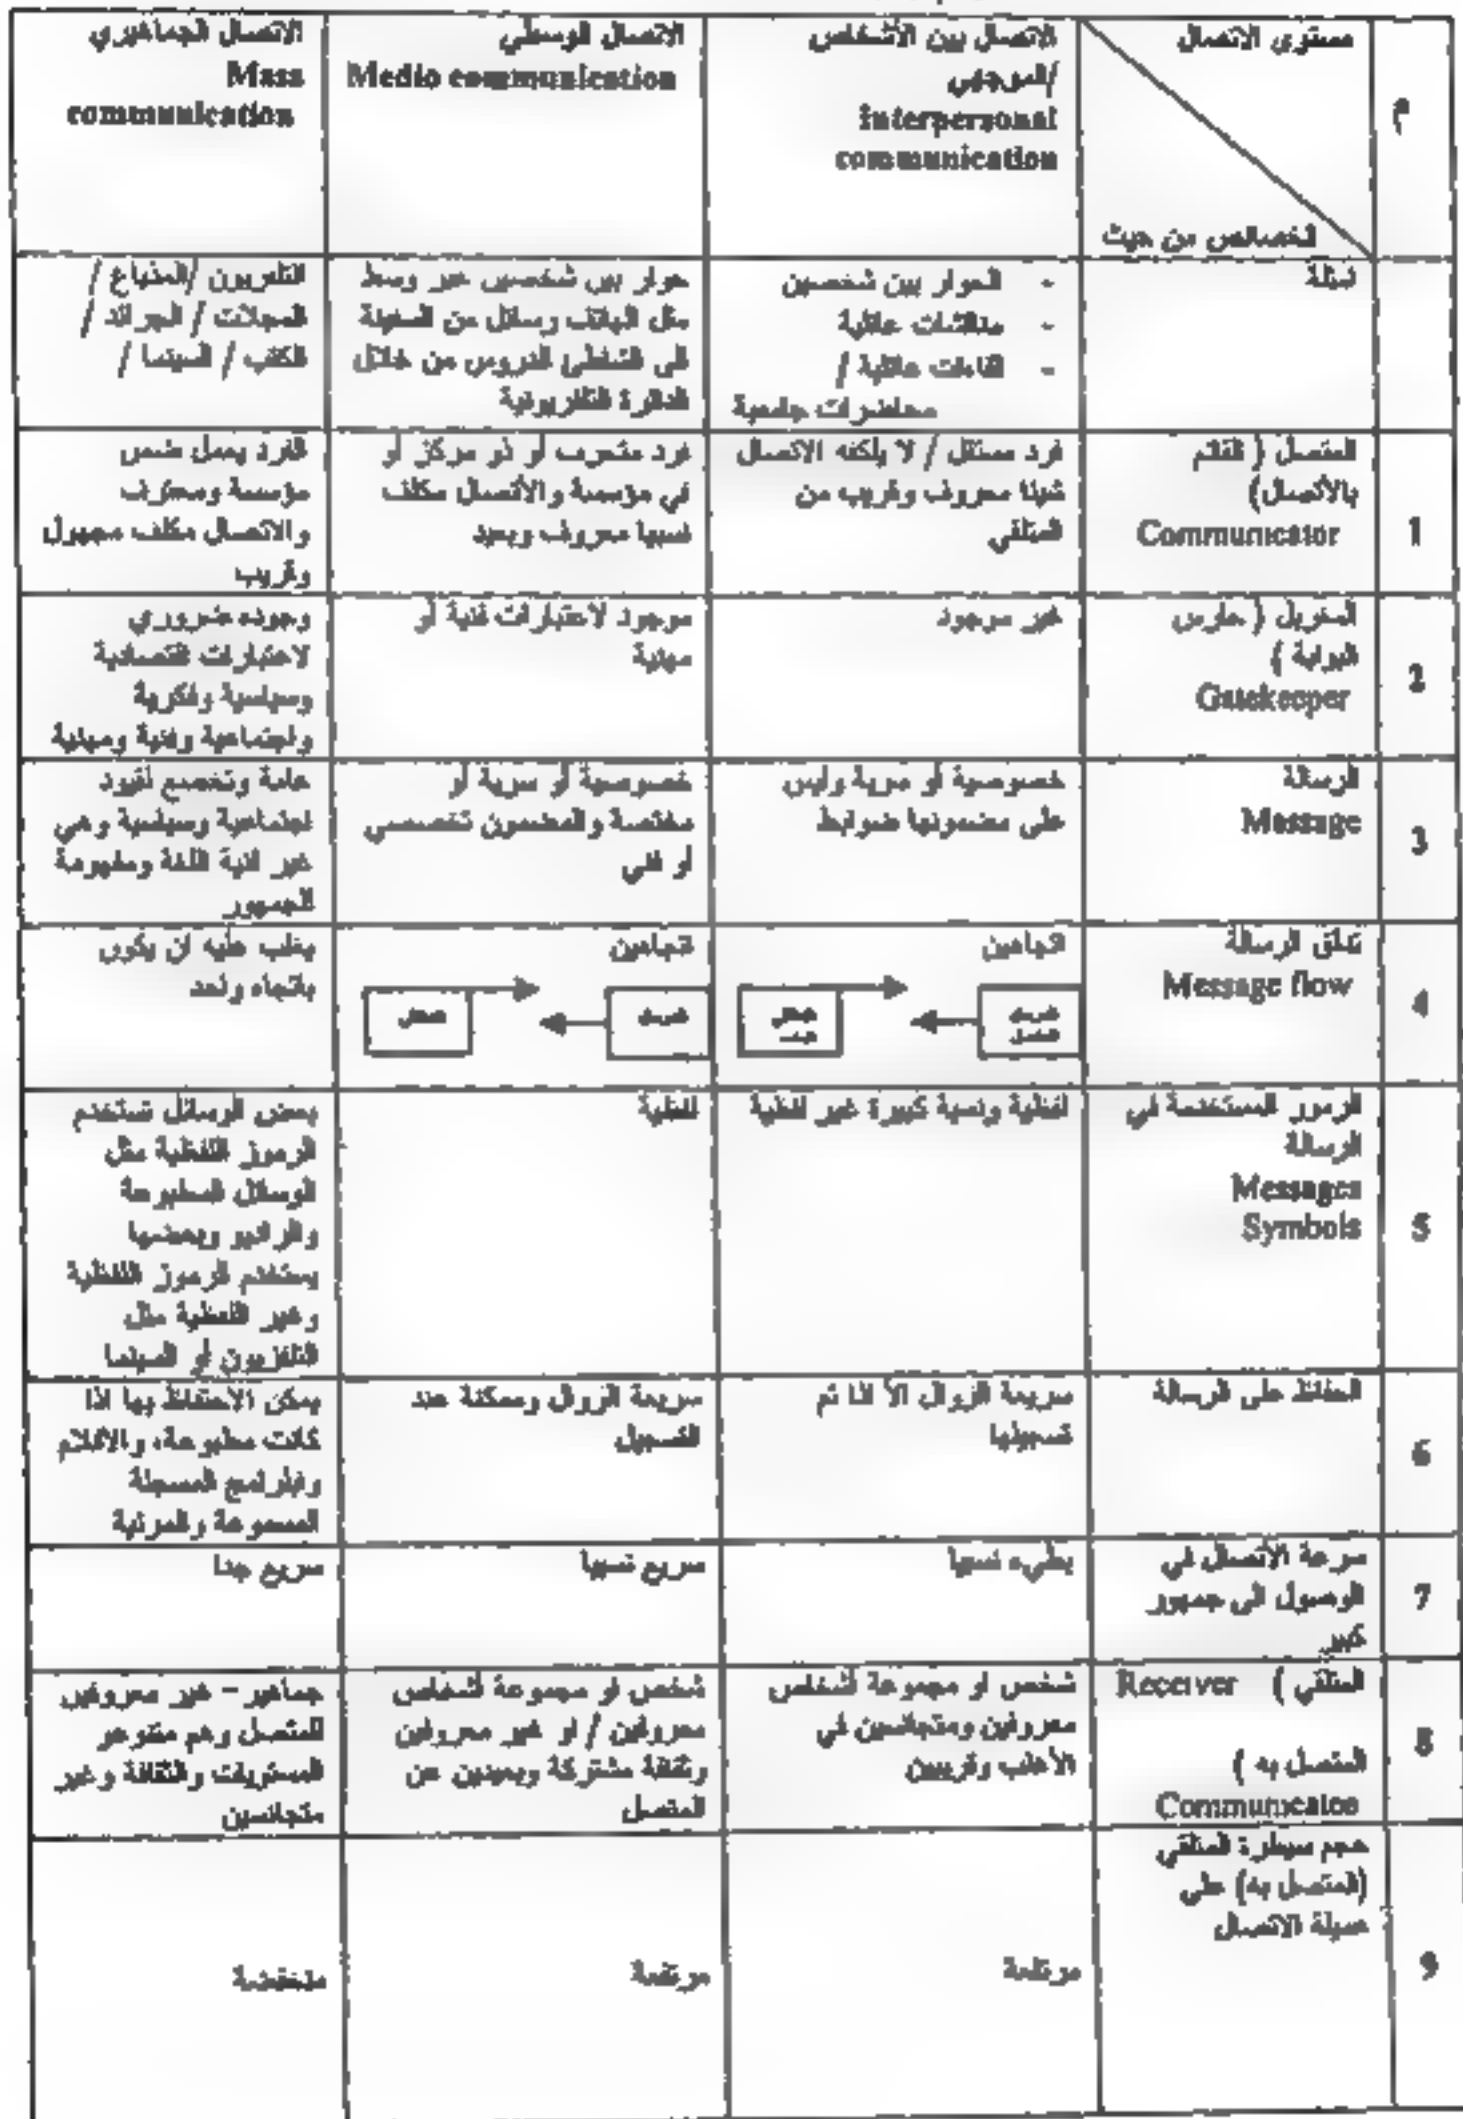 م
مستوى الاتصال
الخصائص من حيث
الاتصال بين الأشخاص
/المرجهي
Interpersonal
communication
الاتصال الوسطي
Medio communication
الاتصال الجماهيري
Mass
communication
امثلة
- الحوار بين شخصين
- مناقشات عائلية
- لقاءات عائلية /
محاضرات جامعية
حوار بين شخصين عبر وسط
مثل الهاتف رسائل من السفينة
الى الشاطئ الدروس من خلال
الدائرة التلفزيونية
التلفزيون /المذياع /
المجلات / الجرائد /
الكتب / السينما /
1
المتصل ( القائم
بالأتصال)
Communicator
فرد مستقل / لا يكلفه الاتصال
شيئا معروف وقريب من
المتلقي
فرد متدرب أو ذو مركز أو
في مؤسسة والأتصال مكلف
نسبيا معروف وبعيد
الفرد يعمل ضمن
مؤسسة ومحترف
والاتصال مكلف مجهول
وقريب
2
المغربل ( حارس
البوابة )
Gatekeeper
غير موجود
موجود لاعتبارات فنية أو
مهنية
وجوده ضروري
لاعتبارات اقتصادية
وسياسية وفكرية
واجتماعية وفنية ومهنية
3
الرسالة
Message
خصوصية أو سرية وليس
على مضمونها ضوابط
خصوصية أو سرية أو
مختصة والمضمون تخصصي
أو فني
عامة وتخضع لقيود
اجتماعية وسياسية وهي
غير فنية اللغة ومفهومة
الجمهور
4
تدفق الرسالة
Message flow
اتجاهين
اتجاهين
يغلب عليه ان يكون
باتجاه واحد
5
الرموز المستخدمة في
الرسالة
Messages
Symbols
لفظية ونسبة كبيرة غير لفظية
لفظية
بعض الوسائل تستخدم
الرموز اللفظية مثل
الوسائل المطبوعة
والراديو وبعضها
يستخدم الرموز اللفظية
وغير اللفظية مثل
التلفزيون أو السينما
6
الحفاظ على الرسالة
سريعة الزوال الأ اذا تم
تسجيلها
سريعة الزوال وممكنة عند
التسجيل
يمكن الاحتفاظ بها اذا
كانت مطبوعة، والافلام
والبرامج المسجلة
المسموعة والمرئية
7
سرعة الأتصال في
الوصول الى جمهور
كبير
بطيء نسبيا
سريع نسبيا
سريع جدا
8
المتلقي ) Receiver
المتصل به )
Communicatee
شخص او مجموعة أشخاص
معروفين ومتجانسين في
الأغلب وقريبين
شخص او مجموعة أشخاص
معروفين / او غير معروفين
وثقافة مشتركة وبعيدين عن
المتصل
جماهير - غير معروفين
للمتصل وهم متنوعو
المستويات والثقافة وغير
متجانسين
9
حجم سيطرة المتلقي
(المتصل به) على
عميلة الاتصال
مرتفعة
مرتفعة
منخفضة